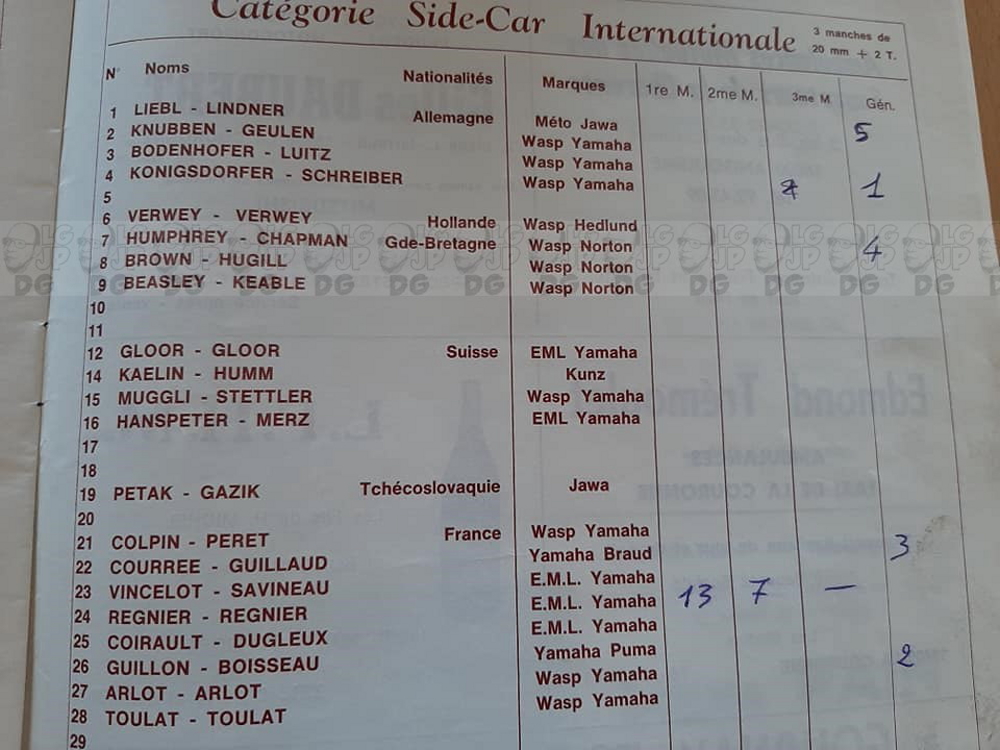 Catégorie Side-Car Internationale 3 manches de
20 mm + 2 T.
N° Noms Nationalités Marques 1re M. 2me M. 3me M Gén.
1 LIEBL - LINDNER Allemagne Méto Jawa 5
2 KNUBBEN - GEULEN Wasp Yamaha
3 BODENHOFER - LUITZ Wasp Yamaha
4 KONIGSDORFER - SCHREIBER Wasp Yamaha 1
5
6 VERWEY - VERWEY Hollande Wasp Hedlund
7 HUMPHREY - CHAPMAN Gde-Bretagne Wasp Norton 4
8 BROWN - HUGILL Wasp Norton
9 BEASLEY - KEABLE Wasp Norton
10
11
12 GLOOR - GLOOR Suisse EML Yamaha
14 KAELIN - HUMM Kunz
15 MUGGLI - STETTLER Wasp Yamaha
16 HANSPETER - MERZ EML Yamaha
17
18
19 PETAK - GAZIK Tchécoslovaquie Jawa
20
21 COLPIN - PERET France Wasp Yamaha 3
22 COURREE - GUILLAUD Yamaha Braud
23 VINCELOT - SAVINEAU E.M.L. Yamaha
24 REGNIER - REGNIER E.M.L. Yamaha 13 7 —
25 COIRAULT - DUGLEUX E.M.L. Yamaha
26 GUILLON - BOISSEAU Yamaha Puma 2
27 ARLOT - ARLOT Wasp Yamaha
28 TOULAT - TOULAT Wasp Yamaha
29